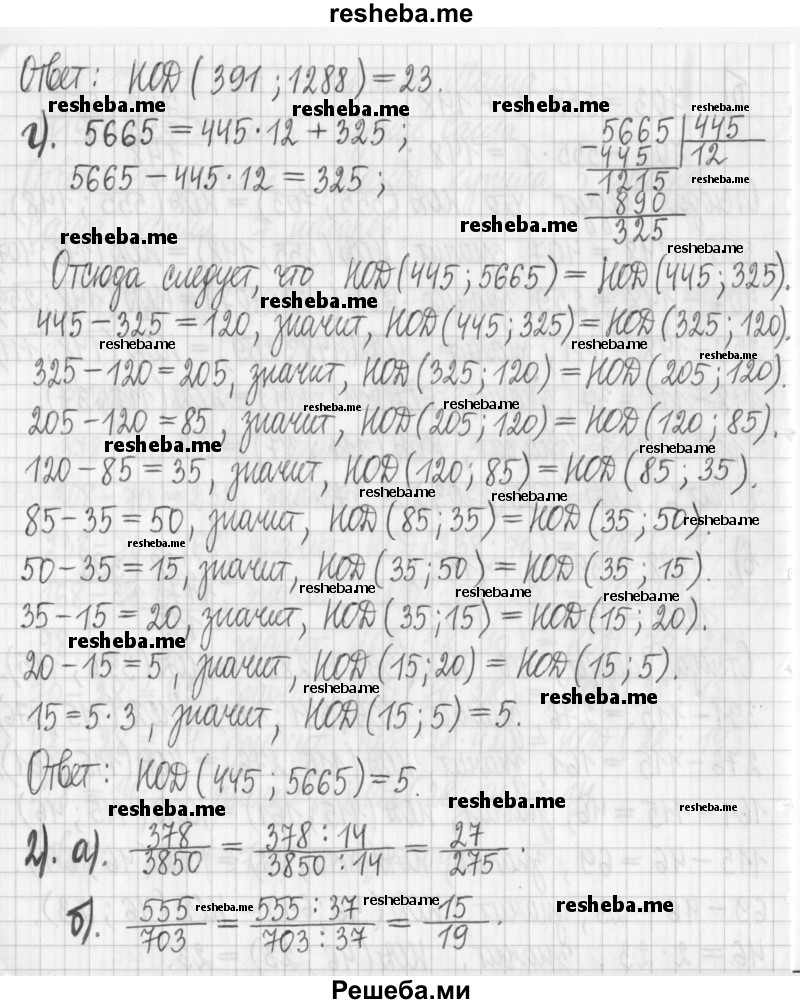 resheba.me
Ответ: НОД(391; 1288) = 23.
resheba.me resheba.me resheba.me resheba.me
г). 5665 = 445·12 + 325;
5665 | 445
5665 − 445·12 = 325;
− 445 | 12
resheba.me
1215
− 890
resheba.me resheba.me
325
resheba.me
Отсюда следует, что НОД(445; 5665) = НОД(445; 325).
resheba.me
445 − 325 = 120, значит, НОД(445; 325) = НОД(325; 120).
resheba.me resheba.me resheba.me
325 − 120 = 205, значит, НОД(325; 120) = НОД(205; 120).
resheba.me resheba.me
205 − 120 = 85, значит, НОД(205; 120) = НОД(120; 85).
resheba.me resheba.me
120 − 85 = 35, значит, НОД(120; 85) = НОД(85; 35).
resheba.me resheba.me
85 − 35 = 50, значит, НОД(85; 35) = НОД(35; 50).
resheba.me
resheba.me
50 − 35 = 15, значит, НОД(35; 50) = НОД(35; 15).
resheba.me resheba.me resheba.me
35 − 15 = 20, значит, НОД(35; 15) = НОД(15; 20).
resheba.me
20 − 15 = 5, значит, НОД(15; 20) = НОД(15; 5).
resheba.me resheba.me
15 = 5·3, значит, НОД(15; 5) = 5.
Ответ: НОД(445; 5665) = 5.
resheba.me resheba.me resheba.me
2). а). 378/3850 = 378 : 14/3850 : 14 = 27/275.
resheba.me resheba.me resheba.me
б). 555/703 = 555 : 37/703 : 37 = 15/19.
Решеба.ми